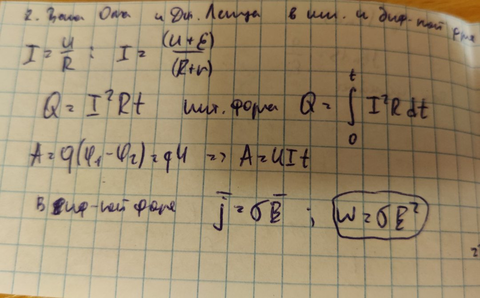 2. Закон Ома и Дж. Ленца в инт. и диф-ной форме
I = U/R ; I = (U+ℰ)/(R+r)
Q = I²Rt инт. форма Q = ∫₀ᵗ I²R dt
A = q(φ₁-φ₂) = qU => A = UIt
В диф-ной форме j̅ = σE̅ ; w = σE²